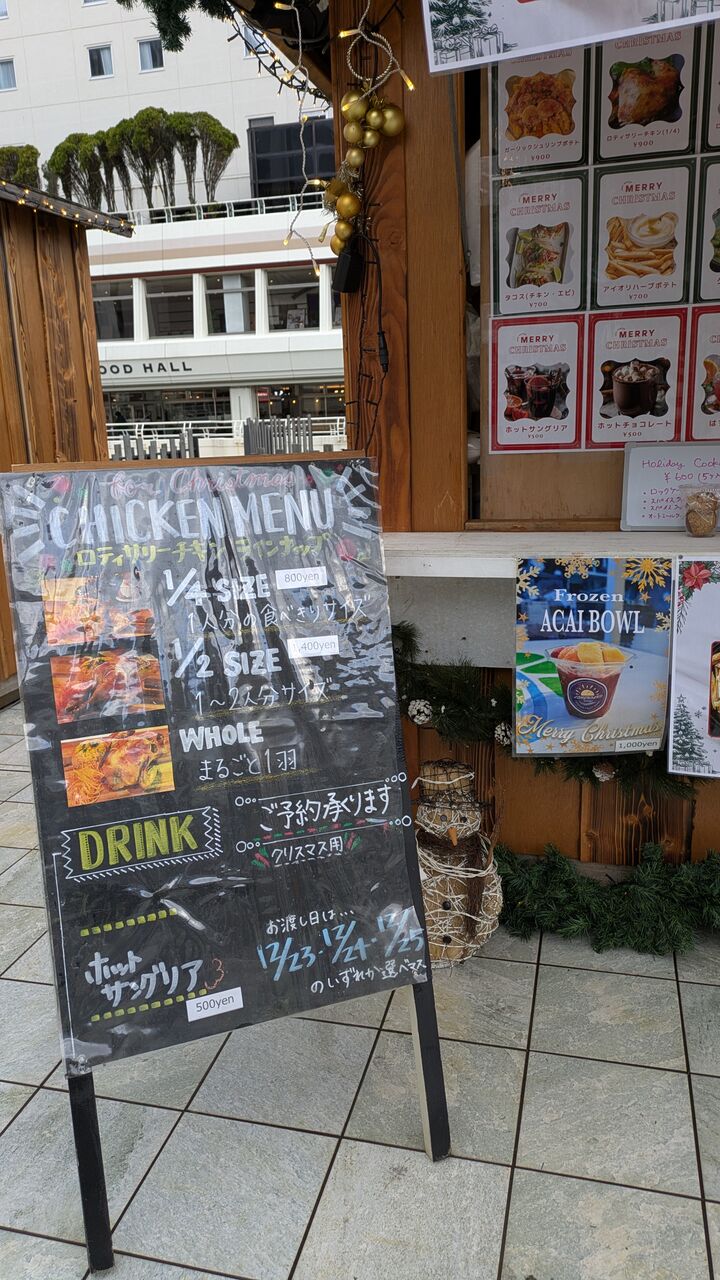 OOD HALL
for Christmas
CHICKEN MENU
ロティサリーチキン ラインナップ
1/4 SIZE 800yen
1人分の食べきりサイズ
1/2 SIZE 1,400yen
1〜2人分サイズ
WHOLE
まるごと1羽
DRINK
ホット
サングリア
500yen
ご予約承ります
クリスマス用
お渡し日は…
12/23・12/24・12/25
のいずれか選べマス
CHRISTMAS
ガーリックシュリンプポテト
¥900
CHRISTMAS
ロティサリーチキン(1/4)
¥900
MERRY
CHRISTMAS
タコス(チキン・エビ)
¥700
MERRY
CHRISTMAS
アイオリハーブポテト
¥700
MERRY
CHRISTMAS
ホットサングリア
¥500
MERRY
CHRISTMAS
ホットチョコレート
¥500
Holiday Cook
¥600
Frozen
ACAI BOWL
Merry Christmas
1,000yen